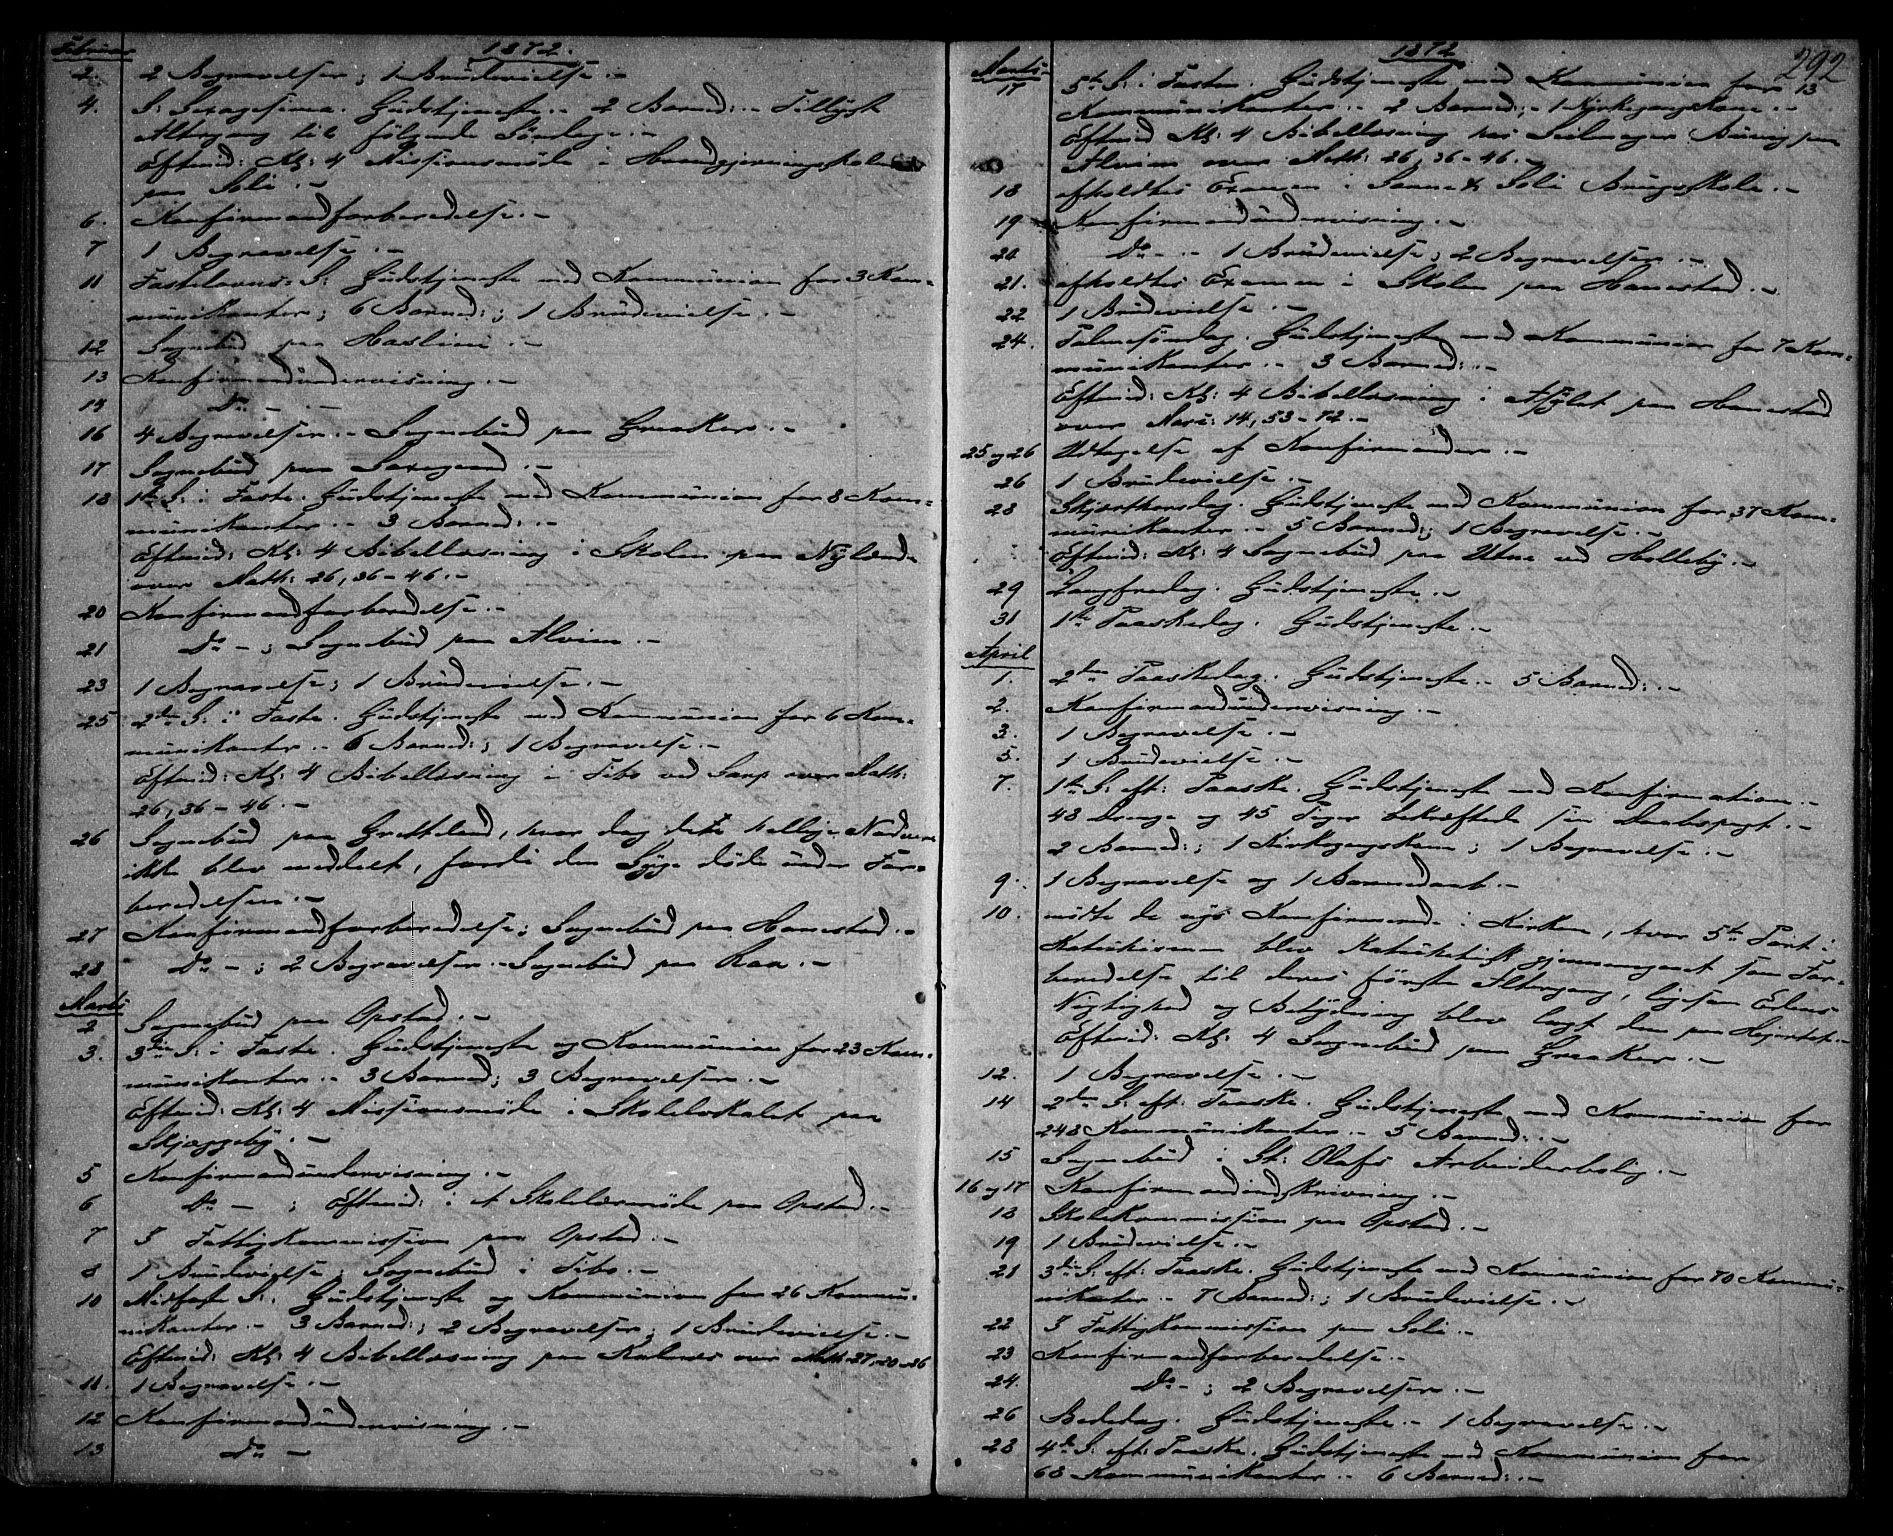 Februar
1872.
2. 2 Begravelser; 1 Brudevielse.-
4. S: Sexagesima. Gudstjeneste.- 2 Barned:.- Tillyst
Altergang til følgende Søndag.-
Eftmid: Kl: 4 Missionsmøde i Haandgjerningsskolen
paa Soli.-
6. Konfirmandforberedelse.-
7 1 Begravelse.-
11 Fastelavns-S: Gudstjeneste med Kommunion for 3 Kom-
munikanter; 6 Barned:; 1 Brudevielse.-
12 Sognebud paa Haslum.-
13 Konfirmandundervisning.-
14 Do - .-
16 4 Begravelser.- Sognebud paa Greaker.-
17 Sognebud paa
18 1ste S: i Faste. Gudstjeneste med Kommunion for 8 Kom-
munikanter.- 3 Barned:.-
Eftmid: Kl: 4 Bibellæsning i Skolen paa Nylænde
over Math: 26, 36-46.-
20 Konfirmandforberedelse.-
21 Do - ; Sognebud paa Alvim.-
23 1 Begravelse; 1 Brudevielse.-
25 2den S: i Faste. Gudstjeneste med Kommunion for 6 Kom-
munikanter.- 6 Barned:; 1 Begravelse.-
Eftmid: Kl: 4 Bibellæsning i Tibo ved Sarp over Math:
26, 36-46.-
26 Sognebud paa Grettland, hvor dog det hellige Nadvere
ikke blev meddelt, fordi den Syge døde under For-
beredelsen.-
27 Konfirmandforberedelse; Sognebud paa Hanestad.-
28 Do - ; 2 Begravelser.- Sognebud paa Raa.-
Marts
2 Sognebud paa Opstad.-
3. 3die S: i Faste. Gudstjeneste og Kommunion for 23 Kom-
munikanter.- 3 Barned; 3 Begravelser.-
Eftmid: Kl: 4 Missionsmøde i Skolelokalet paa
Skjæggeby.-
5 Konfirmandundervisning.-
6 Do - ; Eftmid: i 4 Skolelærermøde paa Opstad.-
7 I Fattigkommission paa Opstad.-
8 1 Brudevielse; Sognebud i Tibo.-
10 Midfaste S:. Gudstjeneste og Kommunion for 26 Kommu-
nikanter.- 3 Barned:; 2 Begravelser; 1 Brudevielse.-
Eftmid: Kl: 4 Bibellæsning paa Kalnes over Math: 27, 20-26
11. 1 Begravelse.-
12 Konfirmandundervisning.-
13 Do -
292
Marts
1872
17 5te S: i Faste. Gudstjeneste med Kommunion for 13
Kommunikanter.- 2 Barned:;- 1 Kirkegangskone.-
Eftmid Kl: 4 Bibellæsning hos Seilmager paa
Alvim over Math: 26, 36-46.-
18 afholdtes Examen i Sanne & Soli Brugsskole.-
19 Konfirmandundervisning.-
20 Do - .- 1 Brudevielse; 2 Begravelser.-
21. afholdtes Examen i Skolen paa Hanestad.-
22 1 Brudevielse.-
24. Palmesøndag. Gudstjeneste med Kommunion for 7 Kom-
munikanter.- 3 Barned:.-
Eftmid: Kl: 4 Bibellæsning i Asylet paa Hanestad
over Marc: 14, 53-72.-
25 og 26 Udtagelse af Konfirmander.-
26 1 Brudevielse.-
28 Skjærthorsdag. Gudstjeneste med Kommunion for 37 Kom-
munikanter.- 5 Barned:; 1 Begravelse.-
Eftmid: Kl: 4 Sognebud paa Utne ved Holleby.-
29 Langfredag. Gudstjeneste.-
31 1ste Paaskedag. Gudstjeneste.-
April
1. 2den Paaskedag. Gudstjeneste.- 5 Barned:.-
2. Konfirmandundervisning.-
3. 1 Begravelse.-
5. 1 Brudevielse.-
7. 1ste S: eft: Paaske. Gudstjeneste med Konfirmation.-
48 Drenge og 45 Piger bekræftede sin Daabspagt.-
2 Barned:; 1 Kirkegangskone; 1 Begravelse.-
9. 1 Begravelse og 1 Barnedaab.-
10. mødte de nys Konfirmerede i Kirken, hvor 5te Part i
Katekismen blev kateketisk gjennemgaaet som For-
beredelse til deres første Altergang, ligesom Edens
Vigtighed og Betydning blev lagt dem paa Hjertet.-
Eftmid: Kl: 4 Sognebud paa Greaker.-
12. 1 Begravelse.-
14 2den S: eft: Paaske. Gudstjeneste med Kommunion for
248 Kommunikanter.- 5 Barned:.-
15 Sognebud i St: Olafs Arbeiderbolig.-
16 og 17 Konfirmandindskrivning.-
18 Skolekommission paa Opstad.-
19 1 Brudevielse.-
21 3die S: eft: Paaske. Gudstjeneste med Kommunion for 70 Kommu-
nikanter.- 7 Barned:; 1 Brudevielse.-
22 I Fattigkommission paa Soli.-
23 Konfirmandforberedelse.-
24. Do - ; 2 Begravelser.-
26 Bededag. Gudstjeneste.- 1 Begravelse.-
28 4de S: eft: Paaske. Gudstjeneste med Kommunion for
68 Kommunikanter.- 6 Barned:.-